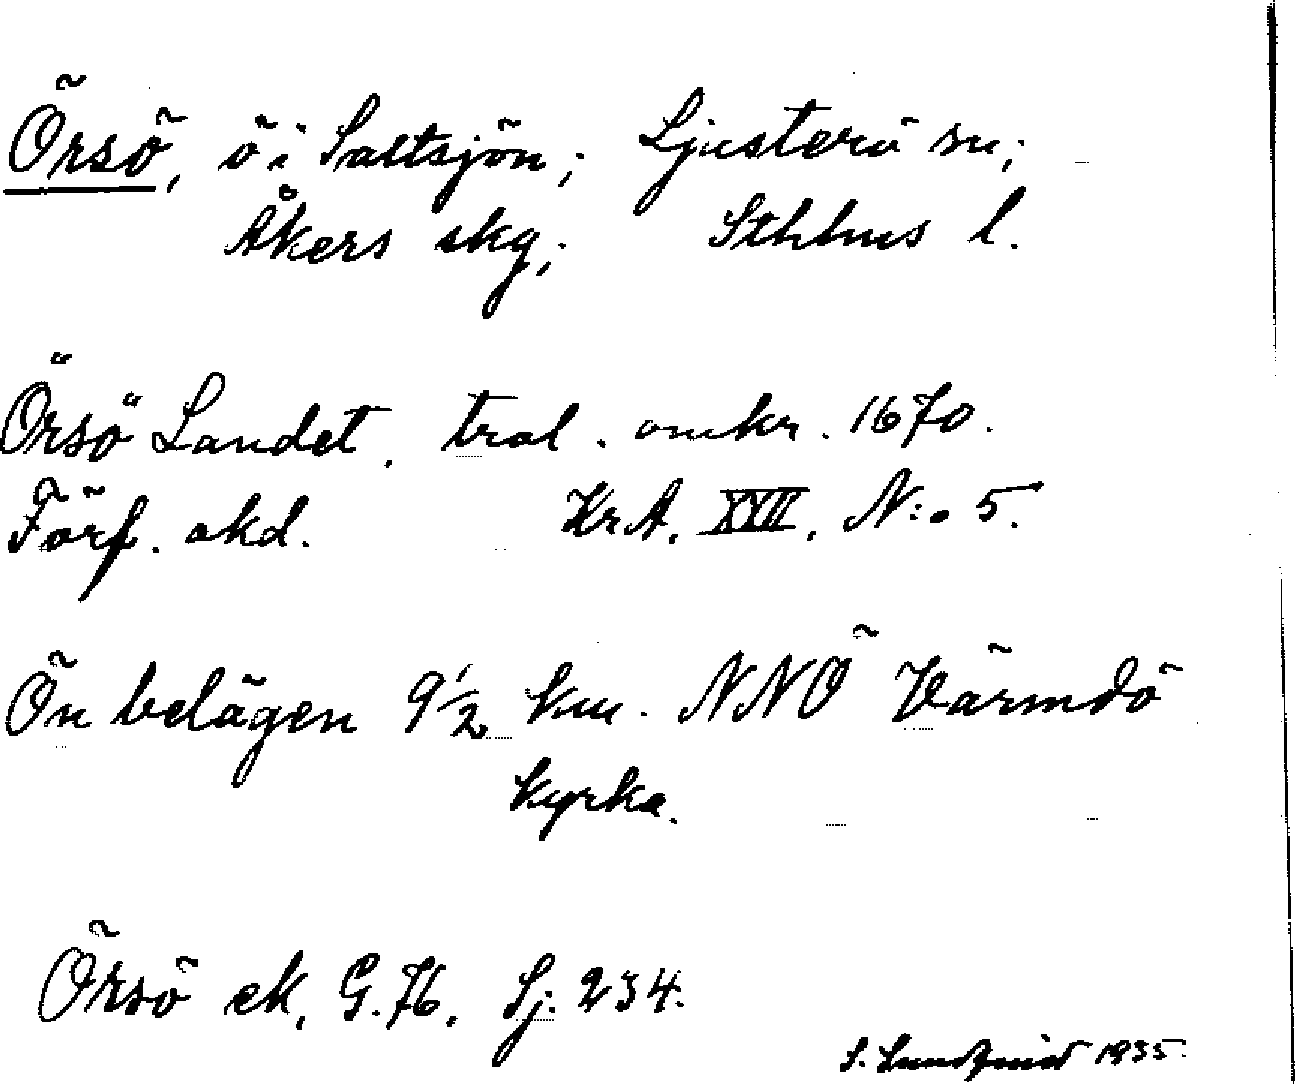 Örsö, ö i Saltsjön; Ljusterö sn;
Åkers skg; Sthlms l.
Örsö Landet. tral. omkr. 1670.
Förf. okd. KrA. XVII. N:o 5.
Ön belägen 9½ km. NNÖ Värmdö
kyrka.
Örsö ek. G.76. Sj. 234.
S. Lundqvist 1935.